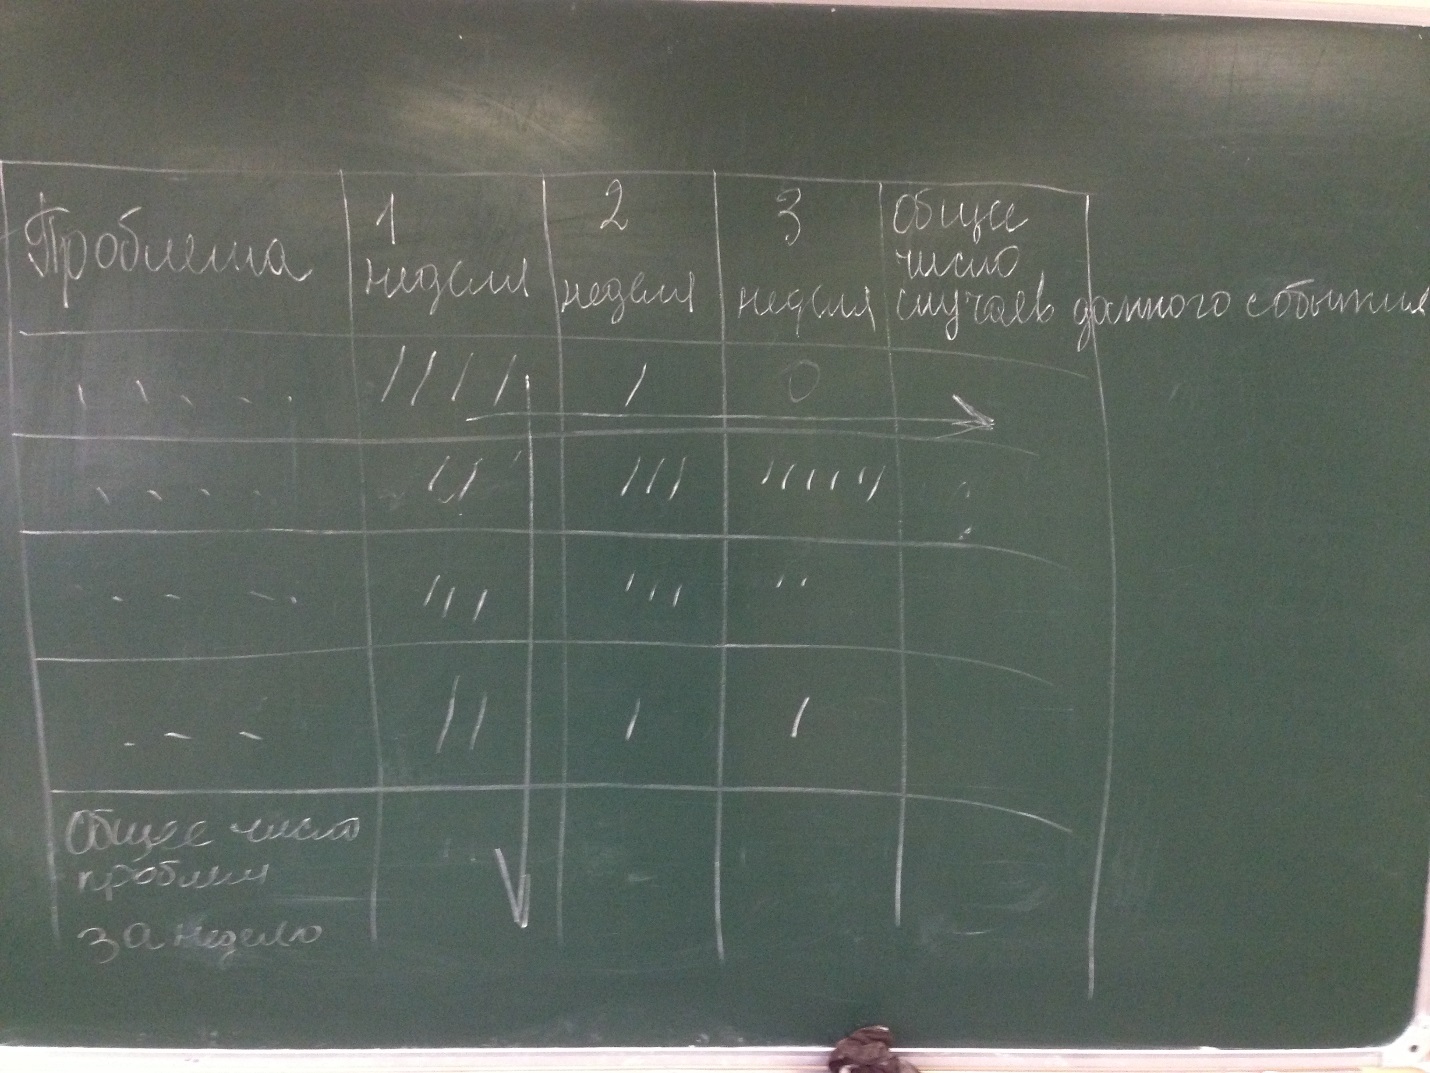 Проблема
1
неделя
2
неделя
3
неделя
Общее
число
случаев данного события
///// / 0
/// /// /////
/// /// //
// / /
Общее число
проблем
за неделю